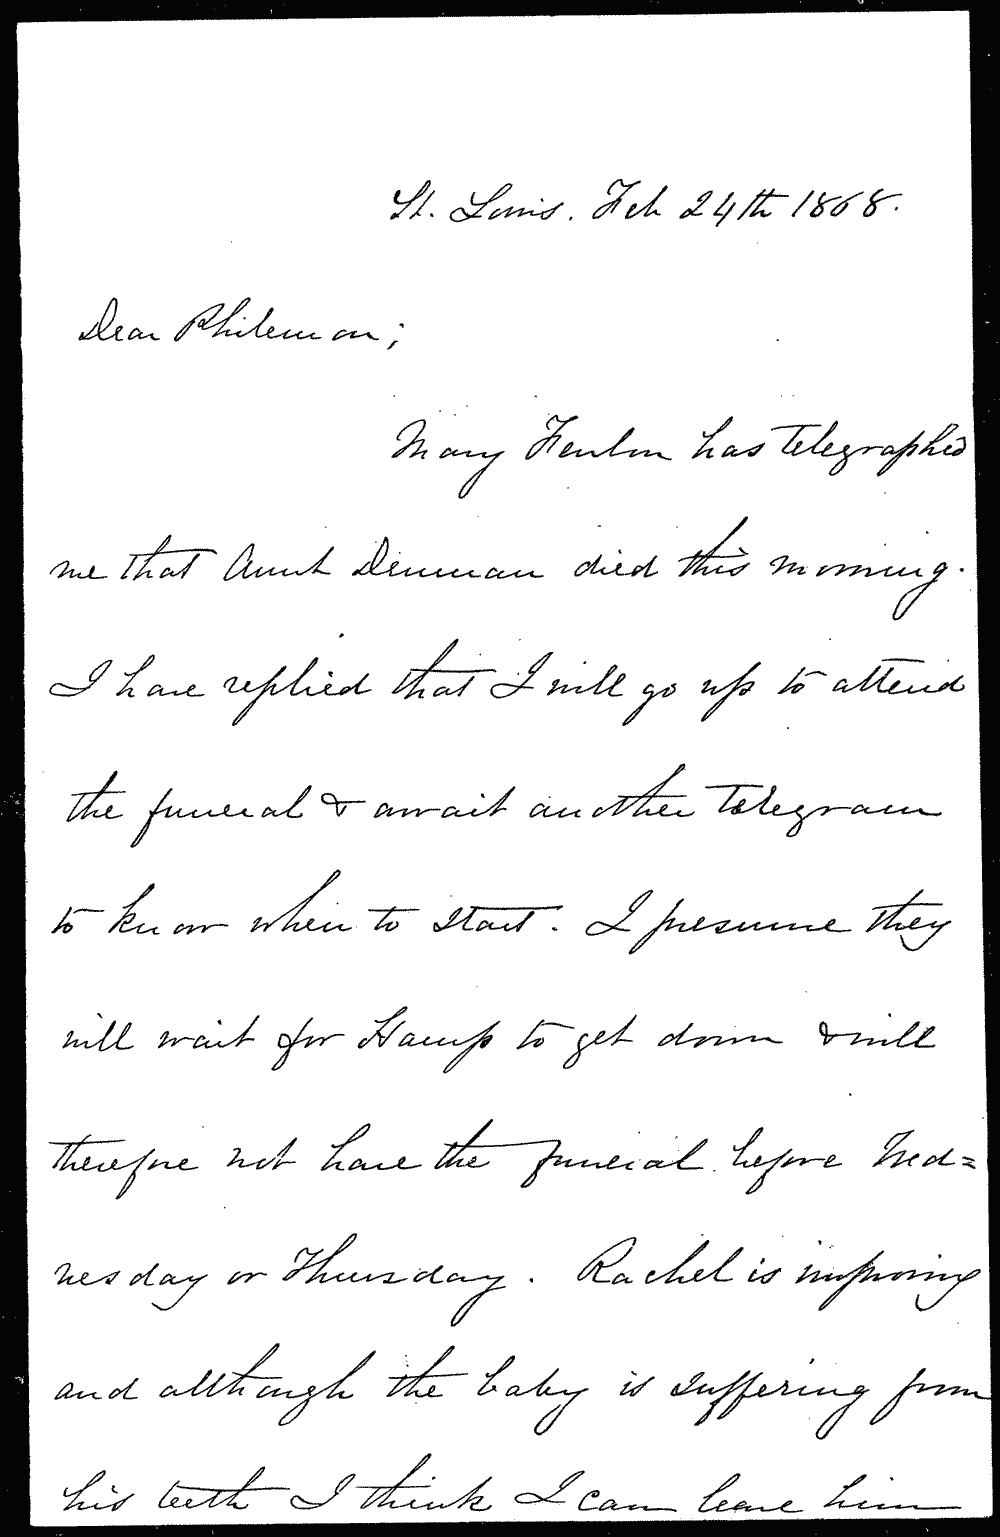 St. Louis. Feb 24th 1868.
Dear Philemon;
Mary Fenlon has telegraphed
me that Aunt Denman died this morning.
I have replied that I will go up to attend
the funeral & await another telegram
to know when to start. I presume they
will wait for Hamp to get down & will
therefore not have the funeral before Wed=
nesday or Thursday. Rachel is improving
and although the baby is suffering from
his teeth I think I can leave him